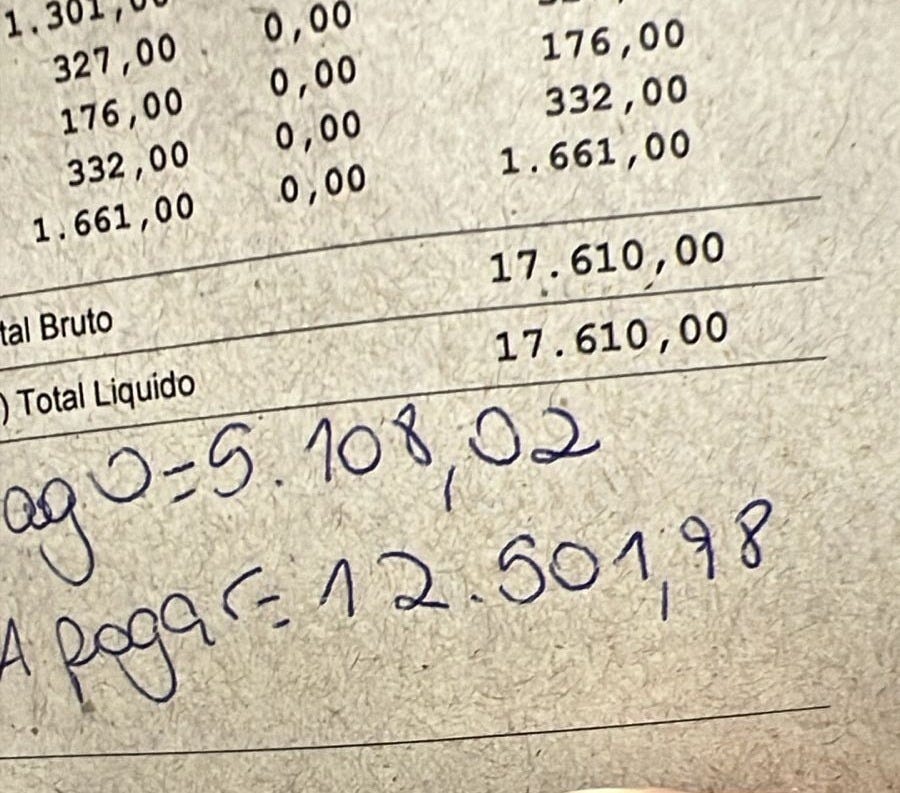 327,00 0,00 176,00
176,00 0,00 332,00
332,00 0,00 1.661,00
1.661,00 0,00
tal Bruto 17.610,00
) Total Liquido 17.610,00
ago=5.108,02
A pagar=12.501,98